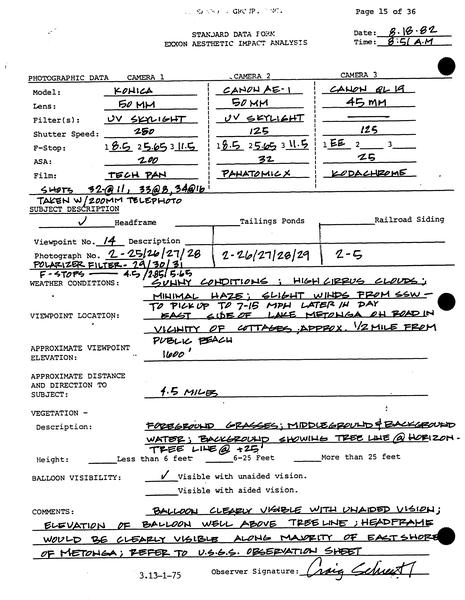 Page 15 of 36
STANDARD DATA FORM
EXXON AESTHETIC IMPACT ANALYSIS
Date: 8-18-82
Time: 8:51 A.M
PHOTOGRAPHIC DATA CAMERA 1 CAMERA 2 CAMERA 3
Model: KONICA CANON AE-1 CANON QL 19
Lens: 50 MM 50 MM 45 MM
Filter(s): UV SKYLIGHT UV SKYLIGHT —
Shutter Speed: 250 125 125
F-Stop: 1 8.5 2 5.65 3 11.5 1 8.5 2 5.65 3 11.5 1 EE 2 3
ASA: 200 32 25
Film: TECH PAN PANATOMIC X KODACHROME
SHOTS 32@11, 33@8, 34@16
TAKEN W/200MM TELEPHOTO
SUBJECT DESCRIPTION
✓ Headframe Tailings Ponds Railroad Siding
Viewpoint No. 14 Description
Photograph No. 2-25/26/27/28 2-26/27/28/29 2-5
POLARIZER FILTER - 29/30/31
F-STOPS — 4.5/285/5.65
WEATHER CONDITIONS: SUNNY CONDITIONS; HIGH CIRRUS CLOUDS;
MINIMAL HAZE; SLIGHT WINDS FROM SSW —
TO PICK UP TO 7-15 MPH LATER IN DAY
VIEWPOINT LOCATION: EAST SIDE OF LAKE METONGA ON ROAD IN
VICINITY OF COTTAGES, APPROX. 1/2 MILE FROM
PUBLIC BEACH
APPROXIMATE VIEWPOINT
ELEVATION: 1600'
APPROXIMATE DISTANCE
AND DIRECTION TO
SUBJECT: 4.5 MILES
VEGETATION -
Description: FOREGROUND GRASSES; MIDDLEGROUND & BACKGROUND
WATER; BACKGROUND SHOWING TREE LINE @ HORIZON-
TREE LINE @ +25'
Height: Less than 6 feet 6-25 Feet More than 25 feet
BALLOON VISIBILITY: ✓ Visible with unaided vision.
Visible with aided vision.
COMMENTS: BALLOON CLEARLY VISIBLE WITH UNAIDED VISION;
ELEVATION OF BALLOON WELL ABOVE TREE LINE; HEADFRAME
WOULD BE CLEARLY VISIBLE ALONG MAJORITY OF EAST SHORE
OF METONGA; REFER TO U.S.G.S. OBSERVATION SHEET
3.13-1-75 Observer Signature: Craig